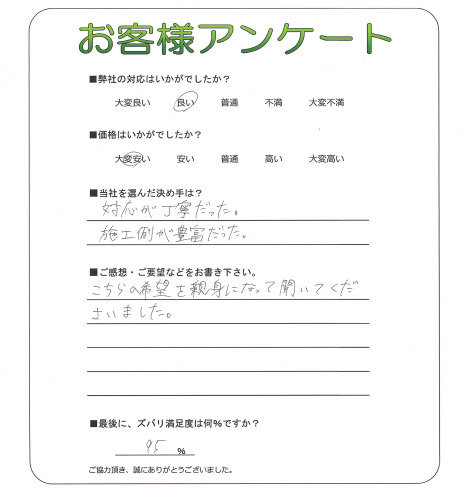 お客様アンケート
■弊社の対応はいかがでしたか？
大変良い 良い 普通 不満 大変不満
■価格はいかがでしたか？
大変安い 安い 普通 高い 大変高い
■当社を選んだ決め手は？
対応が丁寧だった。
施工例が豊富だった。
■ご感想・ご要望などをお書き下さい。
こちらの希望を親身になって聞いてくだ
さいました。
■最後に、ズバリ満足度は何%ですか？
95 %
ご協力頂き、誠にありがとうございました。